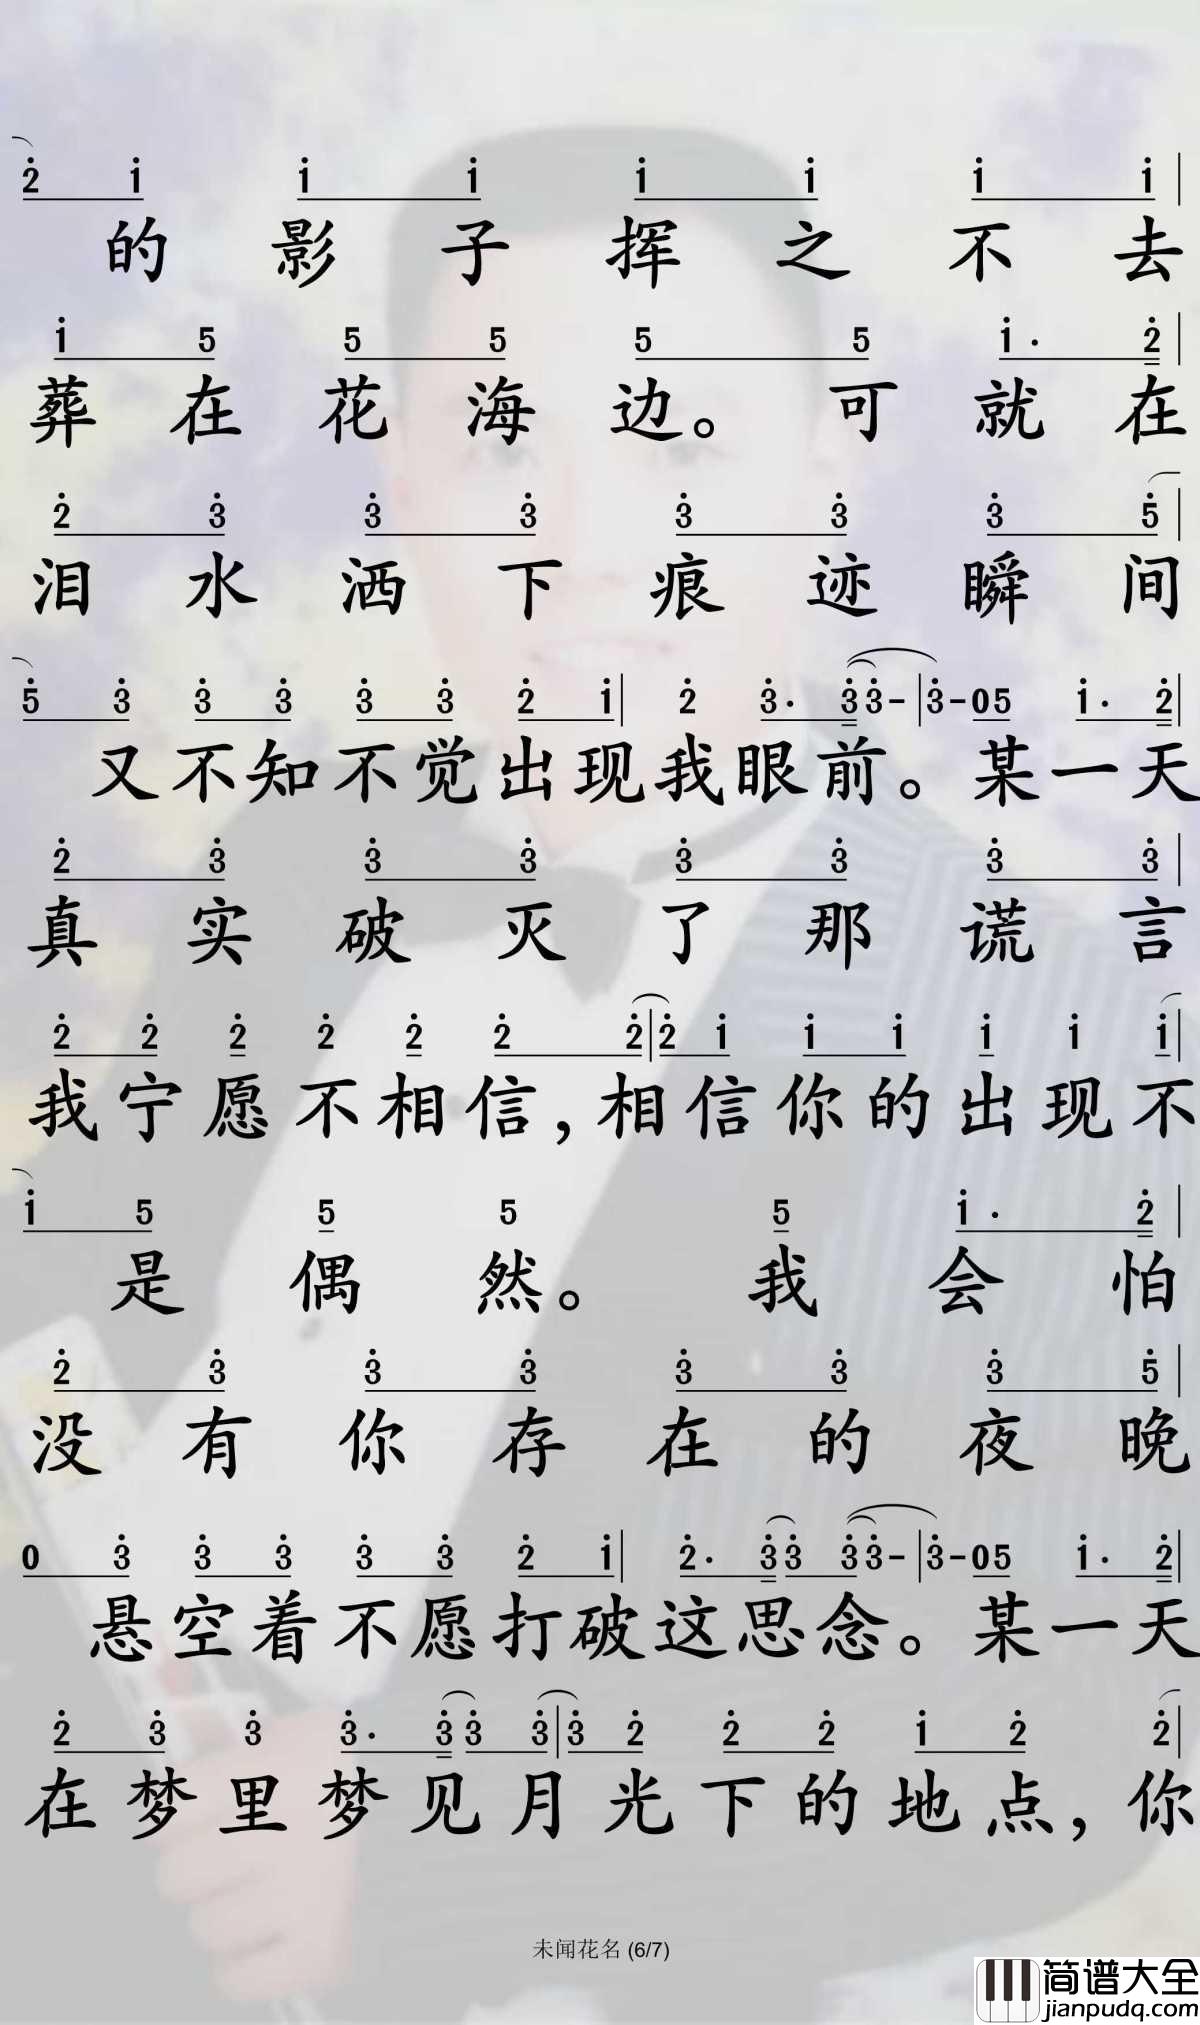 2 1 1 1 1 1 1 1
的影子挥之不去
1 5 5 5 5 5 1· 2
葬在花海边。可就在
2 3 3 3 3 3 3 5
泪水洒下痕迹瞬间
5 3 3 3 3 3 2 1 | 2 3· 3 3- | 3-05 1· 2
又不知不觉出现我眼前。某一天
2 3 3 3 3 3 3 3
真实破灭了那谎言
2 2 2 2 2 2 2 | 2 1 1 1 1 1 1
我宁愿不相信,相信你的出现不
1 5 5 5 5 1· 2
是偶然。我会怕
2 3 3 3 3 3 3 5
没有你存在的夜晚
0 3 3 3 3 3 2 1 | 2· 3 3 3 3- | 3-05 1· 2
悬空着不愿打破这思念。某一天
2 3 3 3· 3 3 3 | 3 2 2 2 1 2 2
在梦里梦见月光下的地点,你
未闻花名 (6/7)
简谱大全
jianpudq.com